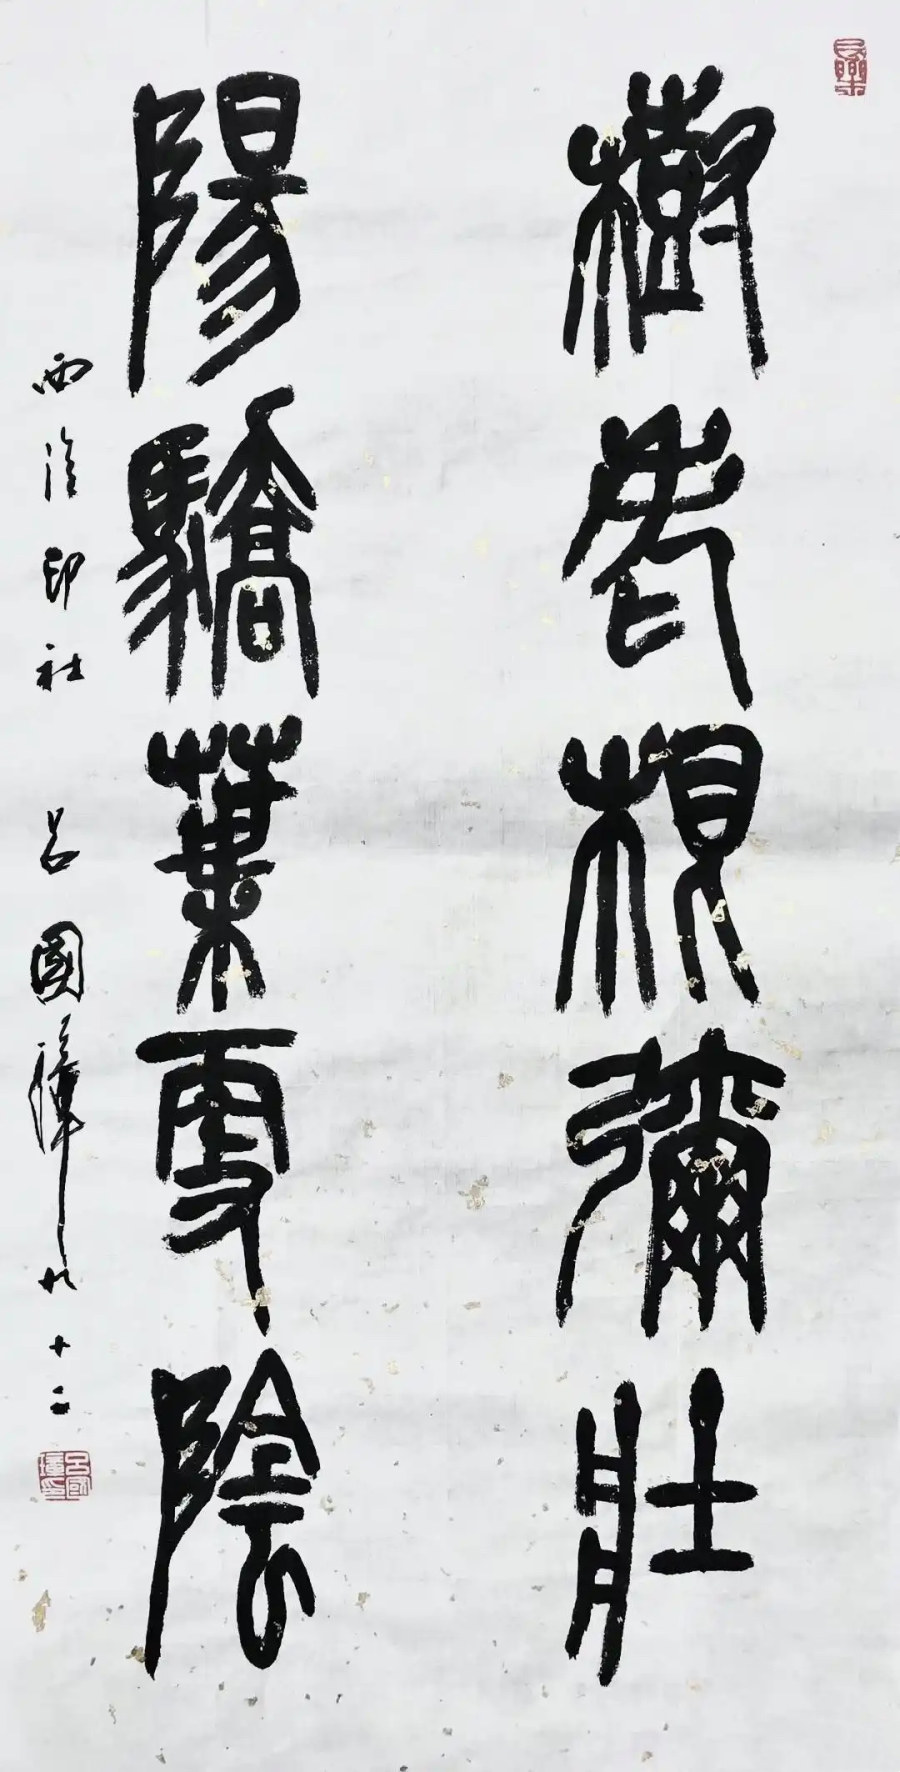 樹老根彌壯
陽驕葉更陰
西泠印社 呂國璋 九十二